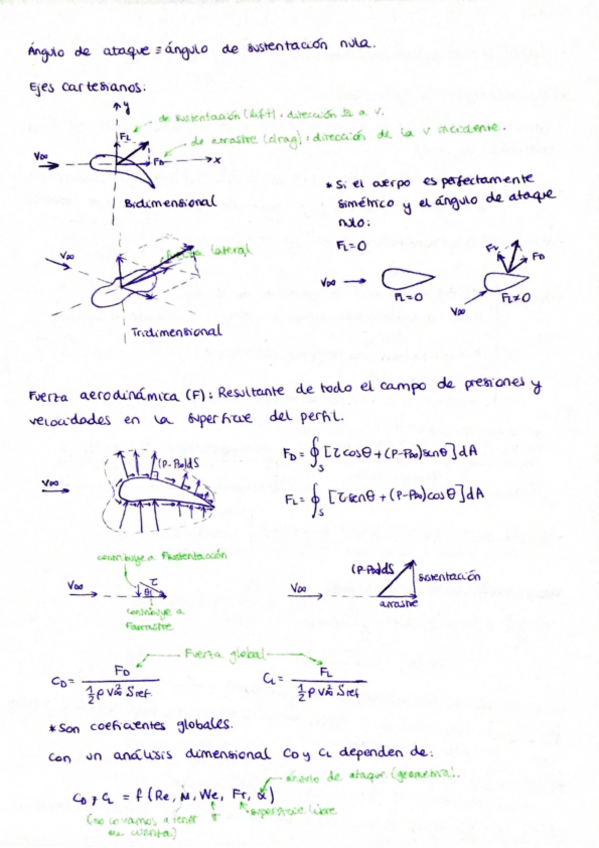 Ángulo de ataque ≡ ángulo de sustentación nula.
Ejes cartesianos:
y
de sustentación (lift): dirección ⊥ a v.
FL
de arrastre (drag): dirección de la v incidente.
V∞
FD
x
Bidimensional
* Si el cuerpo es perfectamente
simétrico y el ángulo de ataque
nulo:
FL = 0
V∞
lateral
Tridimensional
V∞
FL = 0
FL
FD
FL ≠ 0
V∞
Fuerza aerodinámica (F): Resultante de todo el campo de presiones y
velocidades en la superficie del perfil.
(P-P∞)dS
V∞
FD = ∮S [τ cosθ + (P-P∞) senθ] dA
FL = ∮S [τ senθ + (P-P∞) cosθ] dA
contribuye a Fsustentación
V∞
τ
θ
contribuye a
Farrastre
V∞
(P-P∞)dS
sustentación
arrastre
Fuerza global
CD = FD / ½ ρ V∞² Sref.
CL = FL / ½ ρ V∞² Sref
* Son coeficientes globales.
Con un análisis dimensional CD y CL dependen de:
ángulo de ataque (geometría).
CD y CL = f (Re, M, We, Fr, α)
(no lo vamos a tener
en cuenta)
σ
superficie libre